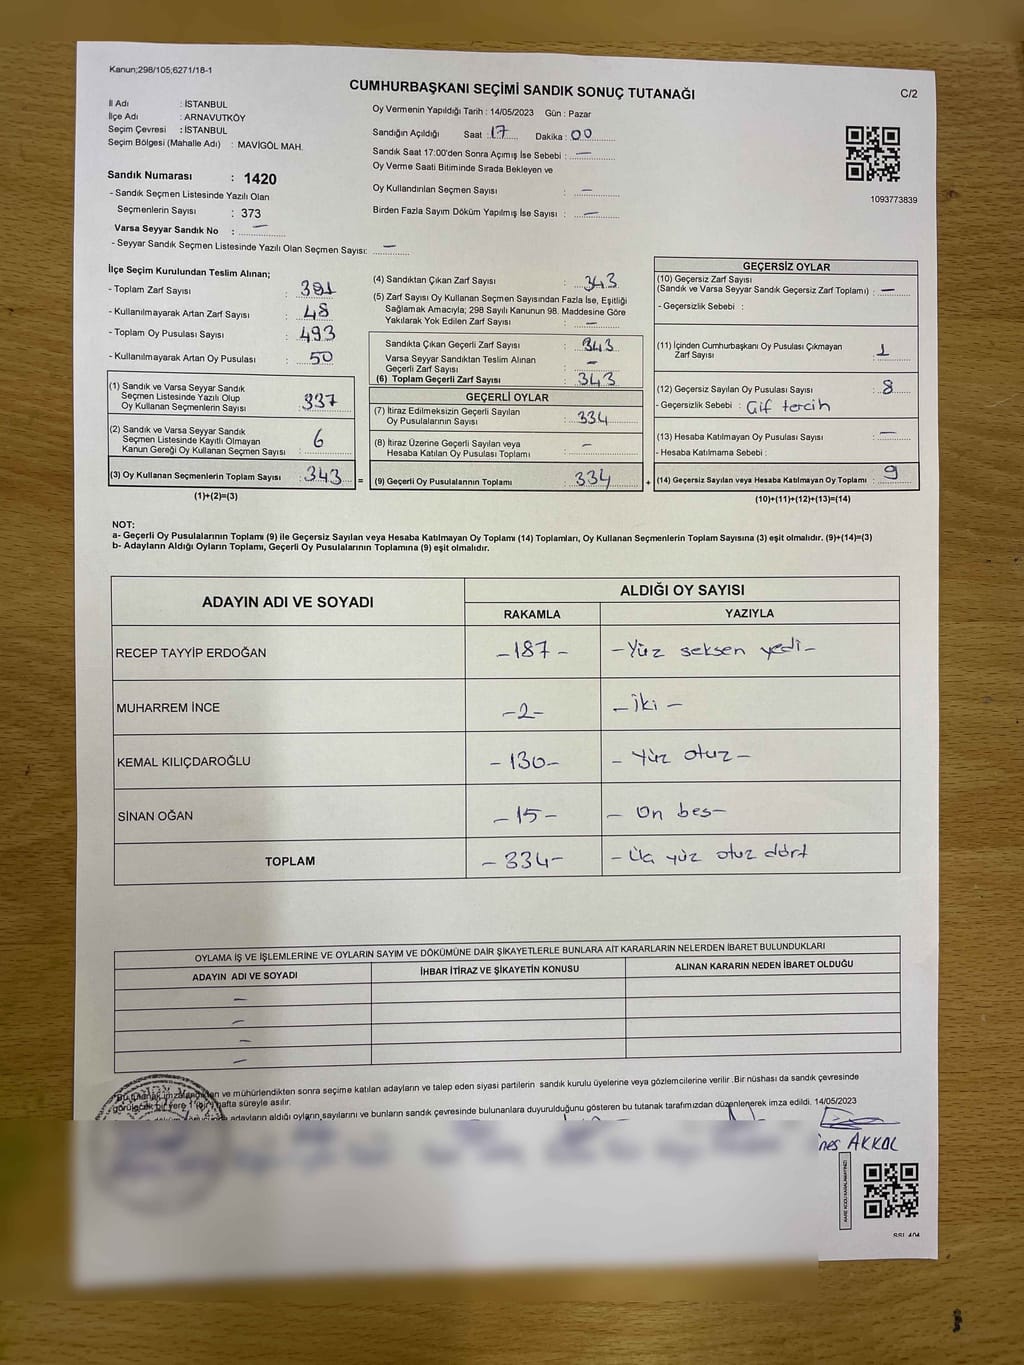 Kanun;298/105;6271/18-1
CUMHURBAŞKANI SEÇİMİ SANDIK SONUÇ TUTANAĞI
C/2
İl Adı : İSTANBUL
İlçe Adı : ARNAVUTKÖY
Seçim Çevresi : İSTANBUL
Seçim Bölgesi (Mahalle Adı) : MAVİGÖL MAH.
Oy Vermenin Yapıldığı Tarih : 14/05/2023 Gün : Pazar
Sandığın Açıldığı Saat : 17 Dakika : 00
Sandık Saat 17:00'den Sonra Açımış İse Sebebi : —
Oy Verme Saati Bitiminde Sırada Bekleyen ve
Oy Kullandırılan Seçmen Sayısı : —
Birden Fazla Sayım Döküm Yapılmış İse Sayısı : —
1093773839
Sandık Numarası : 1420
- Sandık Seçmen Listesinde Yazılı Olan
Seçmenlerin Sayısı : 373
Varsa Seyyar Sandık No : —
- Seyyar Sandık Seçmen Listesinde Yazılı Olan Seçmen Sayısı: —
İlçe Seçim Kurulundan Teslim Alınan;
- Toplam Zarf Sayısı : 391
- Kullanılmayarak Artan Zarf Sayısı : 48
- Toplam Oy Pusulası Sayısı : 493
- Kullanılmayarak Artan Oy Pusulası : 50
(1) Sandık ve Varsa Seyyar Sandık
Seçmen Listesinde Yazılı Olup
Oy Kullanan Seçmenlerin Sayısı : 337
(2) Sandık ve Varsa Seyyar Sandık
Seçmen Listesinde Kayıtlı Olmayan
Kanun Gereği Oy Kullanan Seçmen Sayısı : 6
(3) Oy Kullanan Seçmenlerin Toplam Sayısı : 343 =
(1)+(2)=(3)
(4) Sandıktan Çıkan Zarf Sayısı : 343
(5) Zarf Sayısı Oy Kullanan Seçmen Sayısından Fazla İse, Eşitliği
Sağlamak Amacıyla; 298 Sayılı Kanunun 98. Maddesine Göre
Yakılarak Yok Edilen Zarf Sayısı : —
Sandıkta Çıkan Geçerli Zarf Sayısı : 343
Varsa Seyyar Sandıktan Teslim Alınan
Geçerli Zarf Sayısı : —
(6) Toplam Geçerli Zarf Sayısı : 343
GEÇERLİ OYLAR
(7) İtiraz Edilmeksizin Geçerli Sayılan
Oy Pusulalarının Sayısı : 334
(8) İtiraz Üzerine Geçerli Sayılan veya
Hesaba Katılan Oy Pusulası Toplamı : —
(9) Geçerli Oy Pusulalarının Toplamı : 334 +
GEÇERSİZ OYLAR
(10) Geçersiz Zarf Sayısı
(Sandık ve Varsa Seyyar Sandık Geçersiz Zarf Toplamı) : —
- Geçersizlik Sebebi :
(11) İçinden Cumhurbaşkanı Oy Pusulası Çıkmayan
Zarf Sayısı : 1
(12) Geçersiz Sayılan Oy Pusulası Sayısı : 8
- Geçersizlik Sebebi : Çift tercih
(13) Hesaba Katılmayan Oy Pusulası Sayısı : —
- Hesaba Katılmama Sebebi :
(14) Geçersiz Sayılan veya Hesaba Katılmayan Oy Toplamı : 9
(10)+(11)+(12)+(13)=(14)
NOT:
a- Geçerli Oy Pusulalarının Toplamı (9) ile Geçersiz Sayılan veya Hesaba Katılmayan Oy Toplamı (14) Toplamları, Oy Kullanan Seçmenlerin Toplam Sayısına (3) eşit olmalıdır. (9)+(14)=(3)
b- Adayların Aldığı Oyların Toplamı, Geçerli Oy Pusulalarının Toplamına (9) eşit olmalıdır.
ADAYIN ADI VE SOYADI
ALDIĞI OY SAYISI
RAKAMLA YAZIYLA
RECEP TAYYİP ERDOĞAN -187- -Yüz seksen yedi-
MUHARREM İNCE -2- -İki-
KEMAL KILIÇDAROĞLU -130- -Yüz otuz-
SİNAN OĞAN -15- -On beş-
TOPLAM -334- -Üç yüz otuz dört
OYLAMA İŞ VE İŞLEMLERİNE VE OYLARIN SAYIM VE DÖKÜMÜNE DAİR ŞİKAYETLERLE BUNLARA AİT KARARLARIN NELERDEN İBARET BULUNDUKLARI
ADAYIN ADI VE SOYADI İHBAR İTİRAZ VE ŞİKAYETİN KONUSU ALINAN KARARIN NEDEN İBARET OLDUĞU
—
—
—
—
ve mühürlendikten sonra seçime katılan adayların ve talep eden siyasi partilerin sandık kurulu üyelerine veya gözlemcilerine verilir .Bir nüshası da sandık çevresinde
görülecek bir yere 1 (bir) hafta süreyle asılır.
adayların aldığı oyların sayılarını ve bunların sandık çevresinde bulunanlara duyurulduğunu gösteren bu tutanak tarafımızdan düzenlenerek imza edildi. 14/05/2023
nes AKKOL